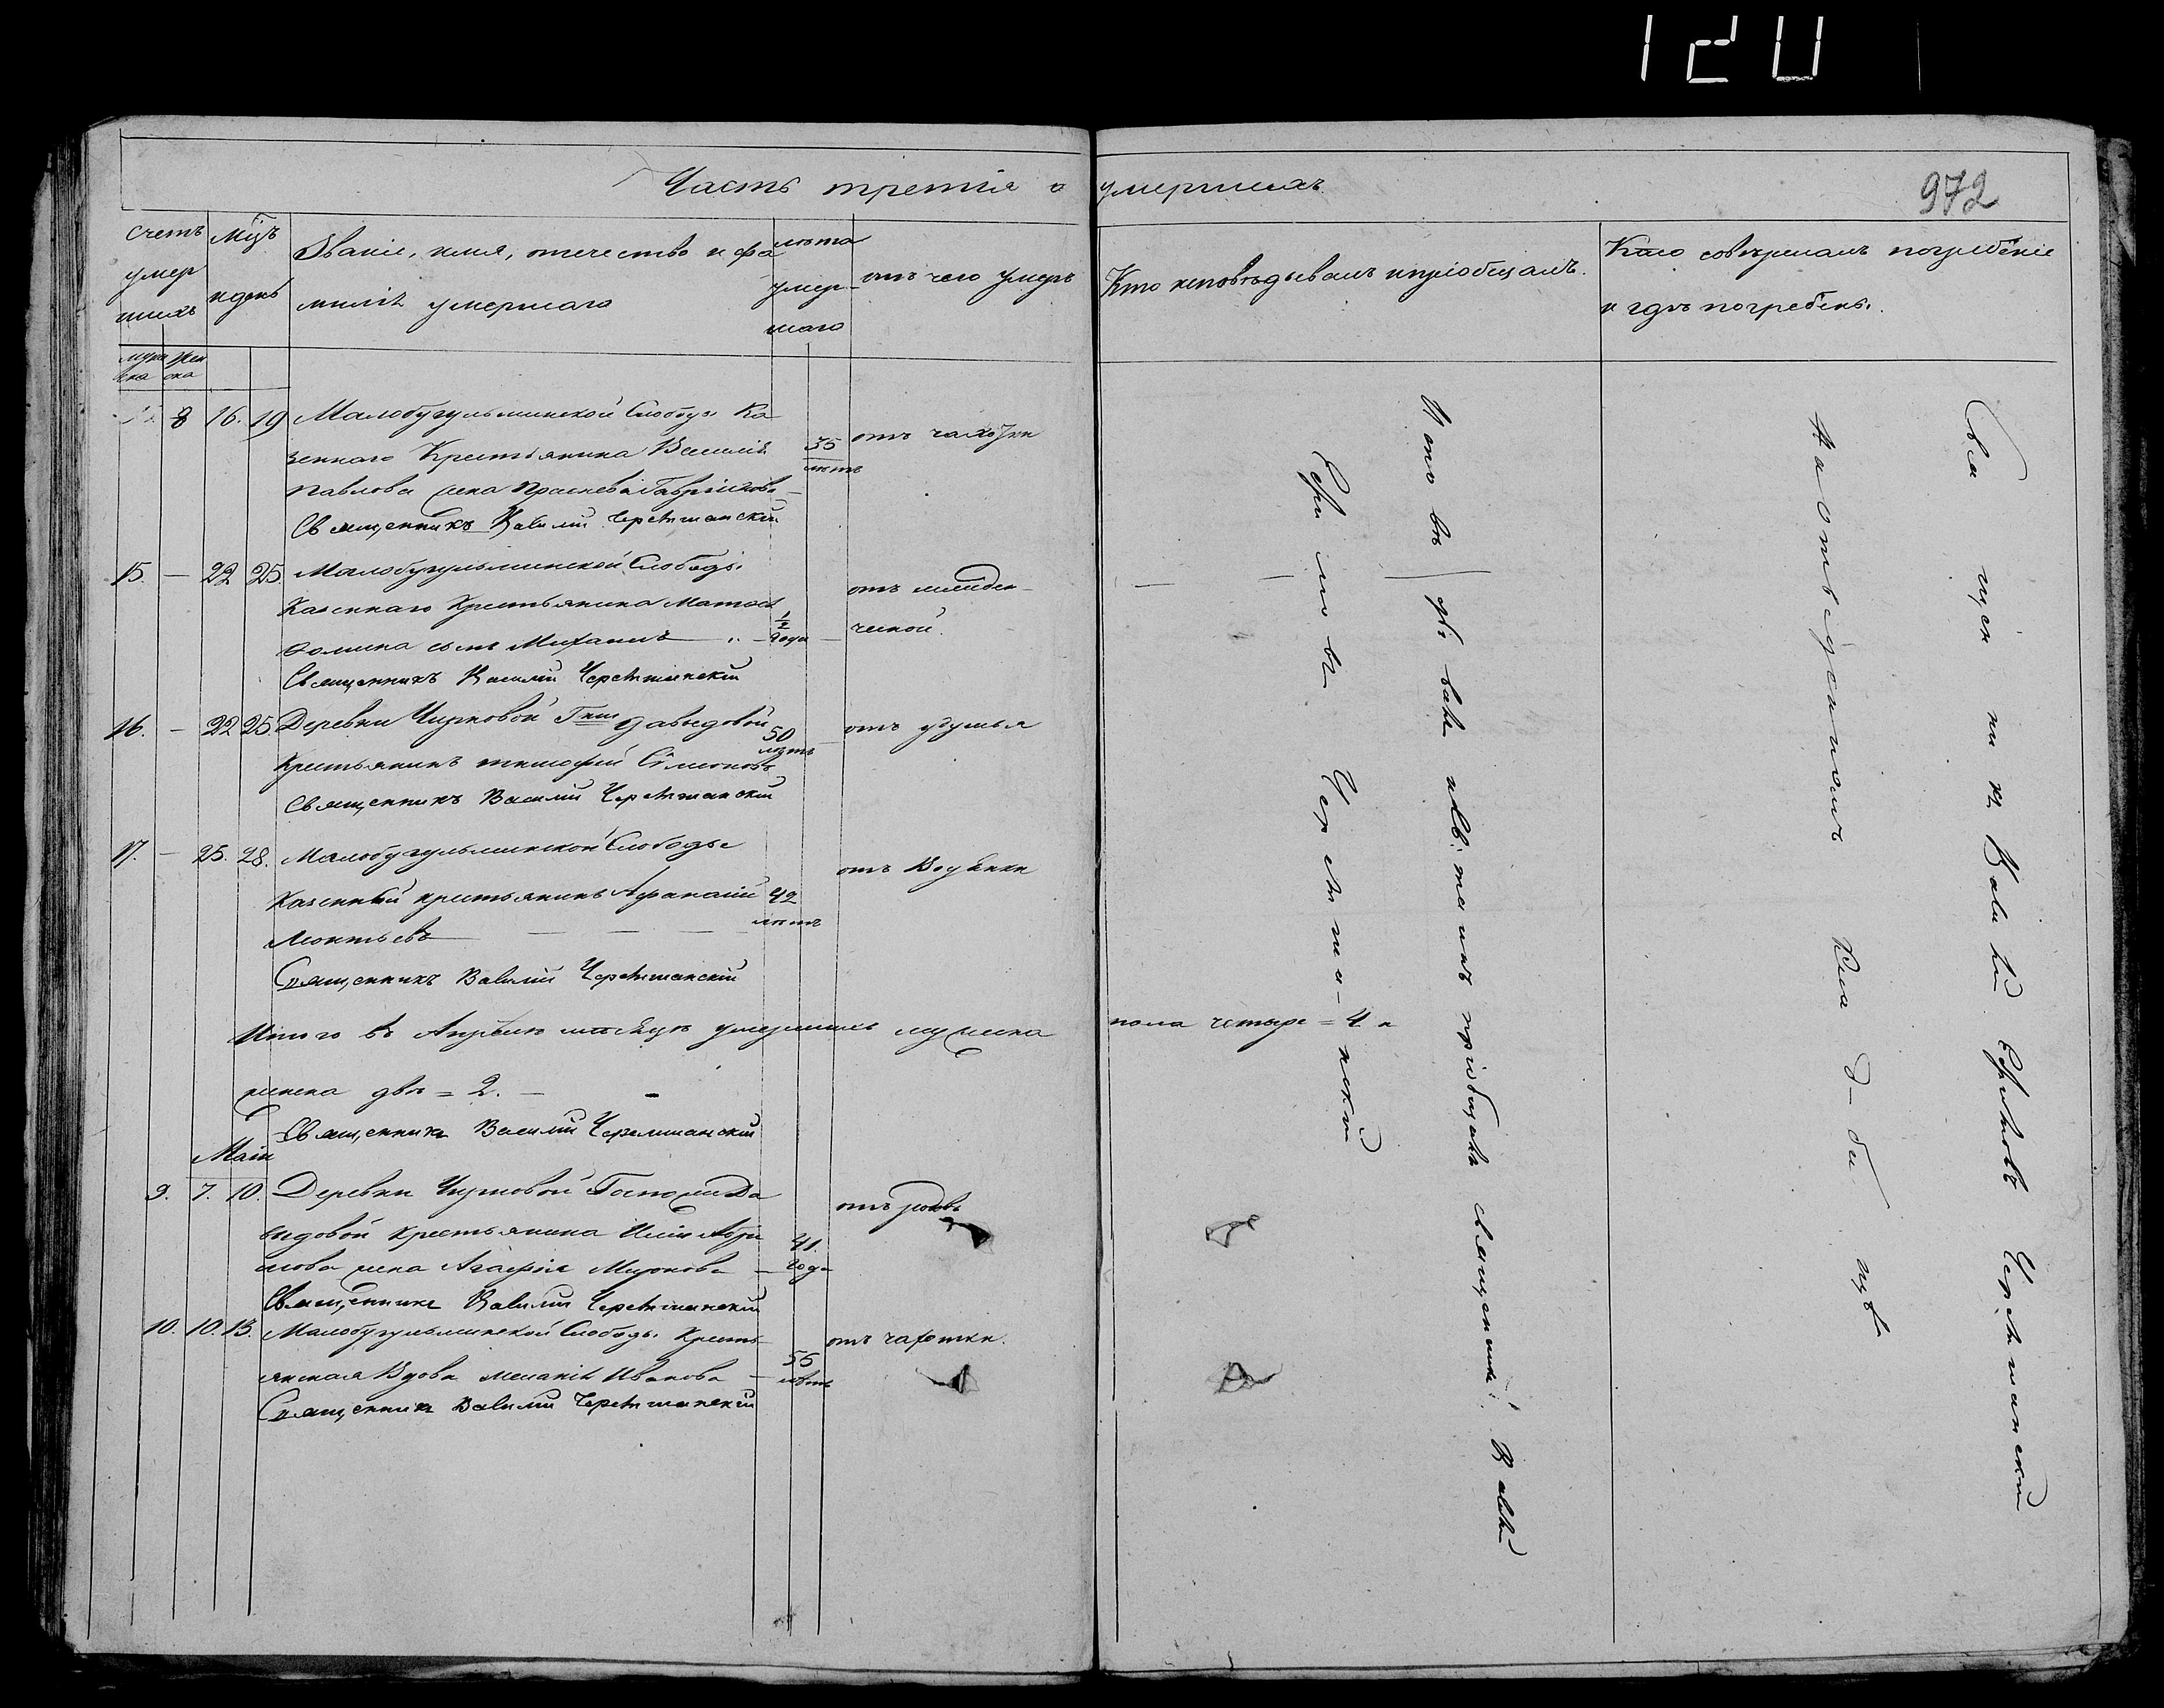 Часть третія о умершихъ
972
Счетъ умершихъ
мужеска
женска
Мцъ и день
Званіе, имя, отечество и фамилія умершаго
лѣта умершаго
отъ чего умеръ
Кто исповѣдывалъ и пріобщалъ.
Кто совершалъ погребеніе
и гдѣ погребены.
8 16. 19 Малобугульминской Слободы Ка
зеннаго Крестьянина Василія 35 отъ чахотки
Павлова жена Гаврилова лѣтъ
Священникъ Василій Черемшанскій
15. — 22 25 Малобугульминской Слободы
Казеннаго Крестьянина
Фомина сынъ Михаилъ — 1/2 года
Священникъ Василій Черемшанскій
16. — 22 25 Деревни Чирковой Гжи Давыдовой 50 лѣтъ
Крестьянинъ Тимофей Симеоновъ
Священникъ Василій Черемшанскій
17. — 25. 28. Малобугульминской Слободы
Казенный крестьянинъ Афанасій 42 лѣтъ отъ Водянки
Леонтьевъ
Священникъ Василій Черемшанскій
Итого въ Апрѣлѣ мѣсяцѣ умершихъ мужеска пола четыре = 4 и
женска двѣ = 2. —
Священникъ Василій Черемшанскій
Маія
9. 7. 10. Деревни Чирковой Госпожи Да
выдовой крестьянина 41. отъ родовъ
жена Агафія Миронова — года
Священникъ Василій Черемшанскій
10. 10. 13. Малобугульминской Слободы Кресть
янская Вдова Меланія Иванова — 56 лѣтъ отъ чахотки.
Священникъ Василій Черемшанскій
Исповѣдывалъ и пріобщалъ Священникъ Василій
Ефимовъ Черемшанскій
Священникъ Василій Ефимовъ Черемшанскій
На отведенномъ Кладбищѣ